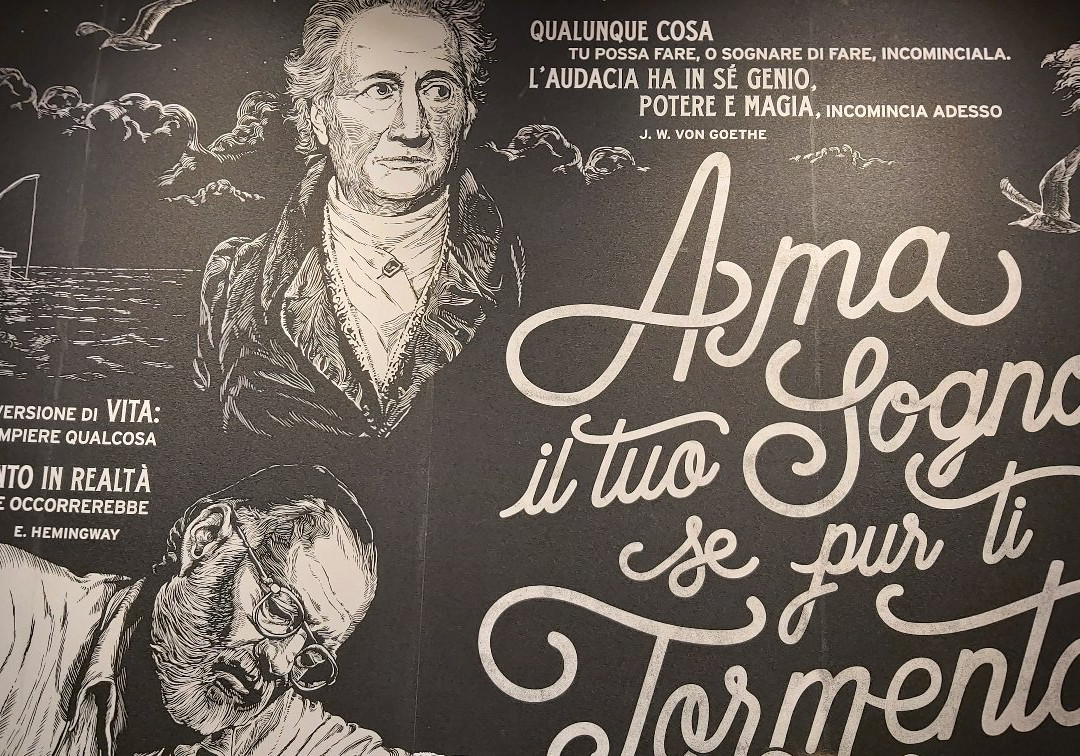 QUALUNQUE COSA
TU POSSA FARE, O SOGNARE DI FARE, INCOMINCIALA.
L'AUDACIA HA IN SÉ GENIO,
POTERE E MAGIA, INCOMINCIA ADESSO
J. W. VON GOETHE
Ama
il tuo Sogno
se pur ti
Tormenta
VERSIONE DI VITA:
MPIERE QUALCOSA
NTO IN REALTÀ
E OCCORREREBBE
E. HEMINGWAY